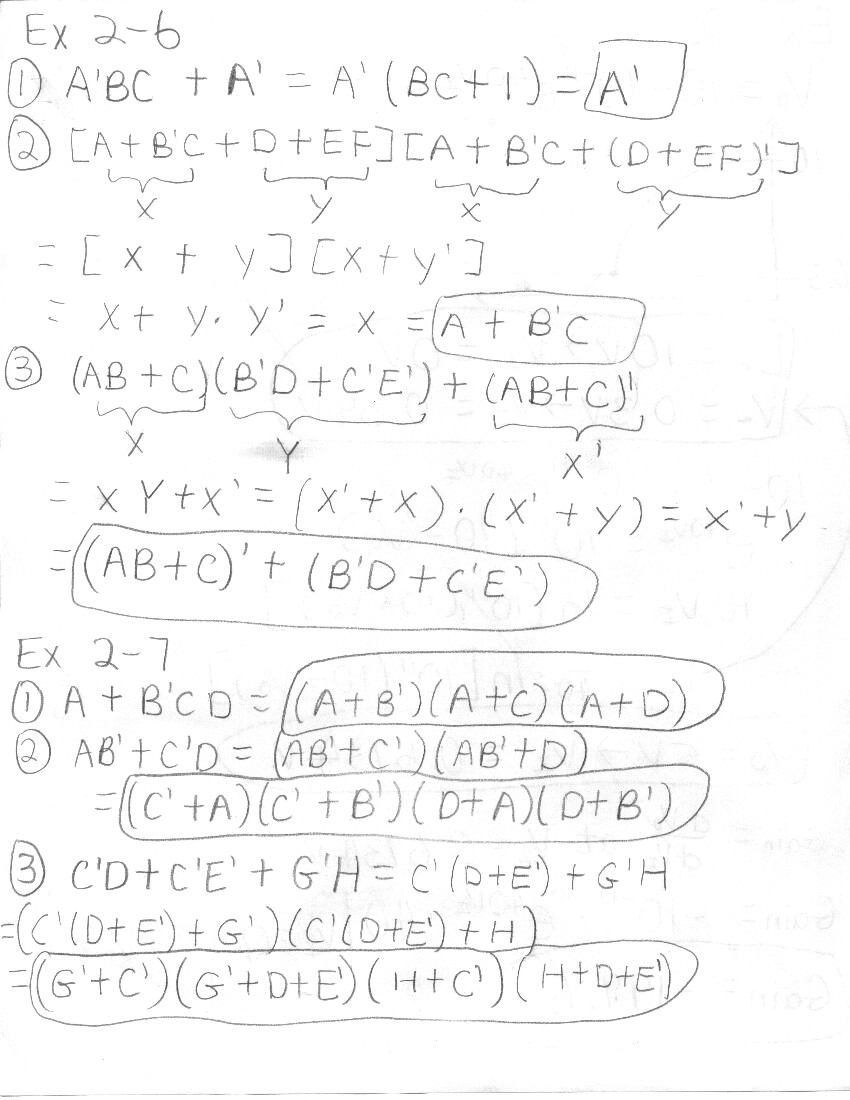 Ex 2-6
① A'BC + A' = A' (BC+1) = A'
② [A+B'C + D+EF][A + B'C + (D+EF)']
X Y X Y
= [ X + Y ] [X+Y']
= X + Y. Y' = X = A + B'C
③ (AB+C)(B'D+C'E') + (AB+C)'
X Y X'
= X Y + X' = (X'+X) . (X' + Y) = X'+Y
= (AB+C)' + (B'D+C'E')
Ex 2-7
① A + B'CD = (A+B')(A+C)(A+D)
② AB'+C'D = (AB'+C')(AB'+D)
= (C'+A)(C'+B')(D+A)(D+B')
③ C'D+C'E' + G'H = C'(D+E') + G'H
= (C'(D+E')+G')(C'(D+E')+H)
= (G'+C')(G'+D+E')(H+C')(H+D+E')